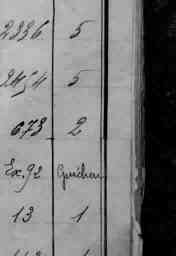 2336 5
2454 5
673 2
Ex.92 Guichau
13 1